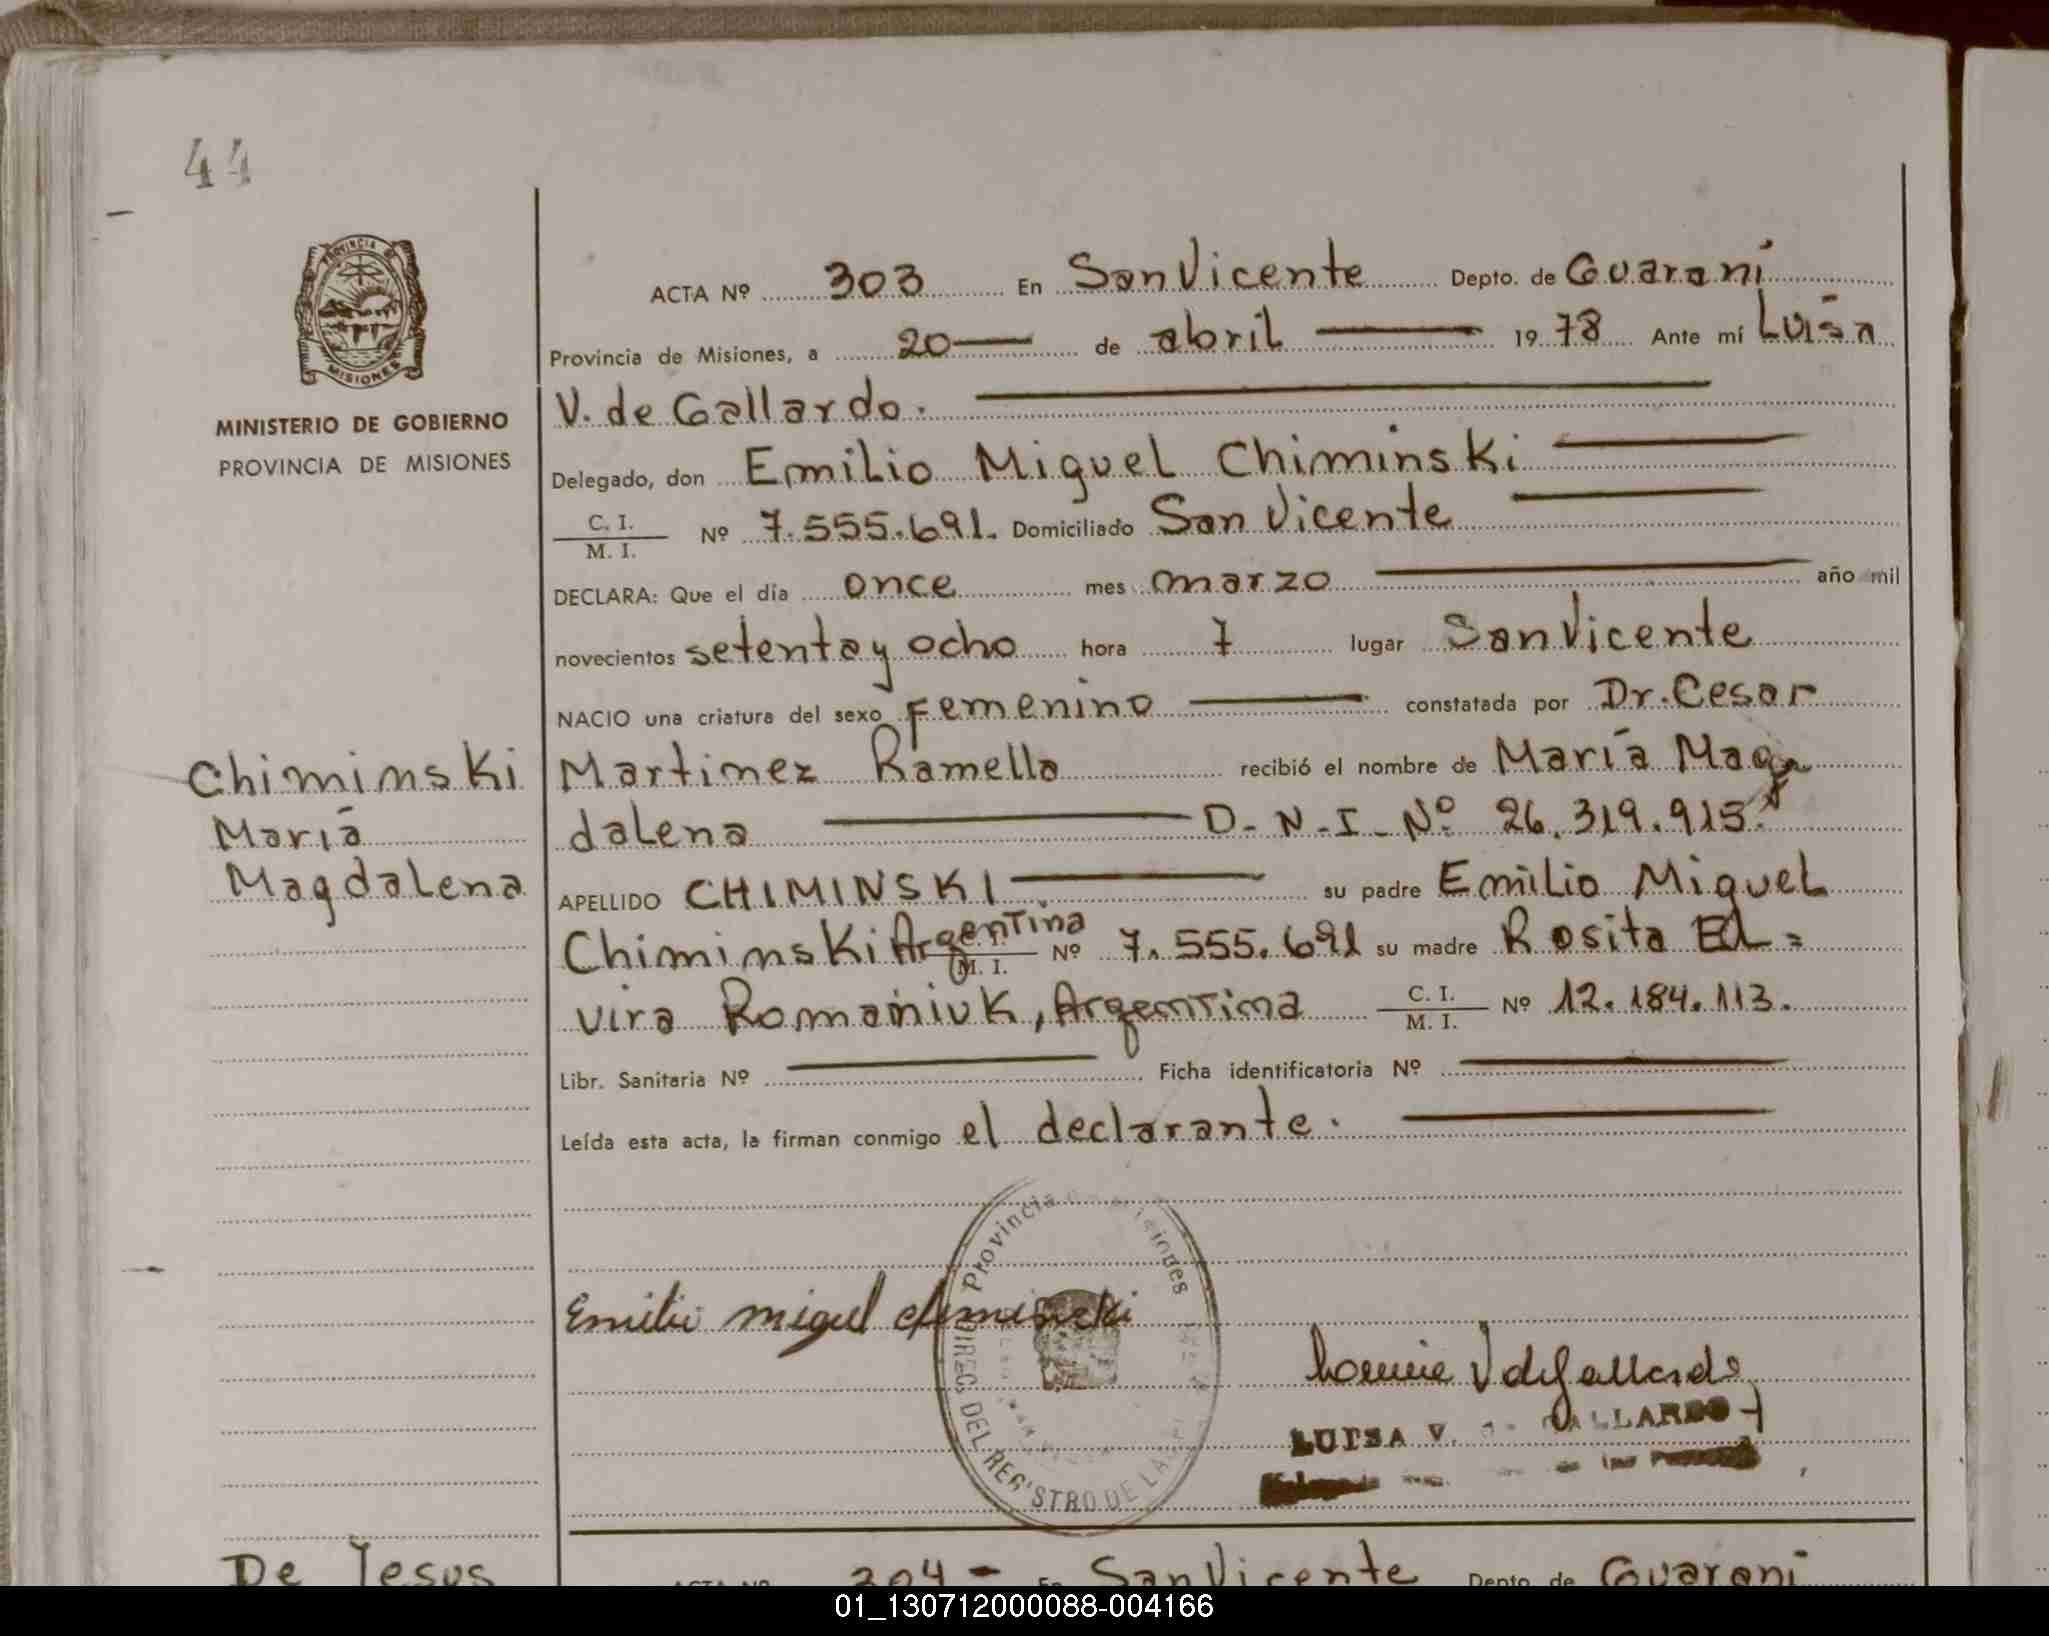 44
PROVINCIA DE
MISIONES
MINISTERIO DE GOBIERNO
PROVINCIA DE MISIONES
ACTA Nº 303 En San Vicente Depto. de Guaraní
Provincia de Misiones, a 20 de abril 1978 Ante mí Luisa
V. de Gallardo.
Delegado, don Emilio Miguel Chiminski
C. I.
M. I. Nº 7.555.691. Domiciliado San Vicente
DECLARA: Que el día once mes marzo año mil
novecientos setenta y ocho hora 7 lugar San Vicente
NACIO una criatura del sexo Femenino constatada por Dr. Cesar
Martinez Ramella recibió el nombre de María Mag
dalena D-N-I-Nº 26.319.915.
Chiminski
María
Magdalena
APELLIDO CHIMINSKI su padre Emilio Miguel
Chiminski Argentina M. I. Nº 7.555.691 su madre Rosita El=
vira Romaniuk, Argentina C. I. M. I. Nº 12.184.113.
Libr. Sanitaria Nº Ficha identificatoria Nº
Leída esta acta, la firman conmigo el declarante.
Provincia Misiones
DIREC. DEL REGISTRO DE LA
Emilio Miguel Chiminski
V de Gallardo
LUISA V. GALLARDO
De Jesus
ACTA Nº 304 - En San Vicente Depto. de Guaraní
01_130712000088-004166